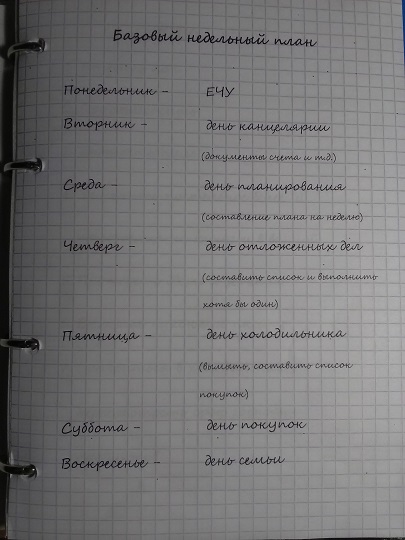 Базовый недельный план
Понедельник - ЕЧУ
Вторник - день канцелярии
(документы счета и т.д.)
Среда - день планирования
(составление плана на неделю)
Четверг - день отложенных дел
(составить список и выполнить
хотя бы один)
Пятница - день холодильника
(вымыть, составить список
покупок)
Суббота - день покупок
Воскресенье - день семьи